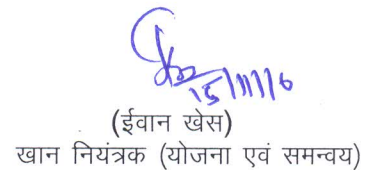 15/11/16
(ईवान खेस)
खान नियंत्रक (योजना एवं समन्वय)